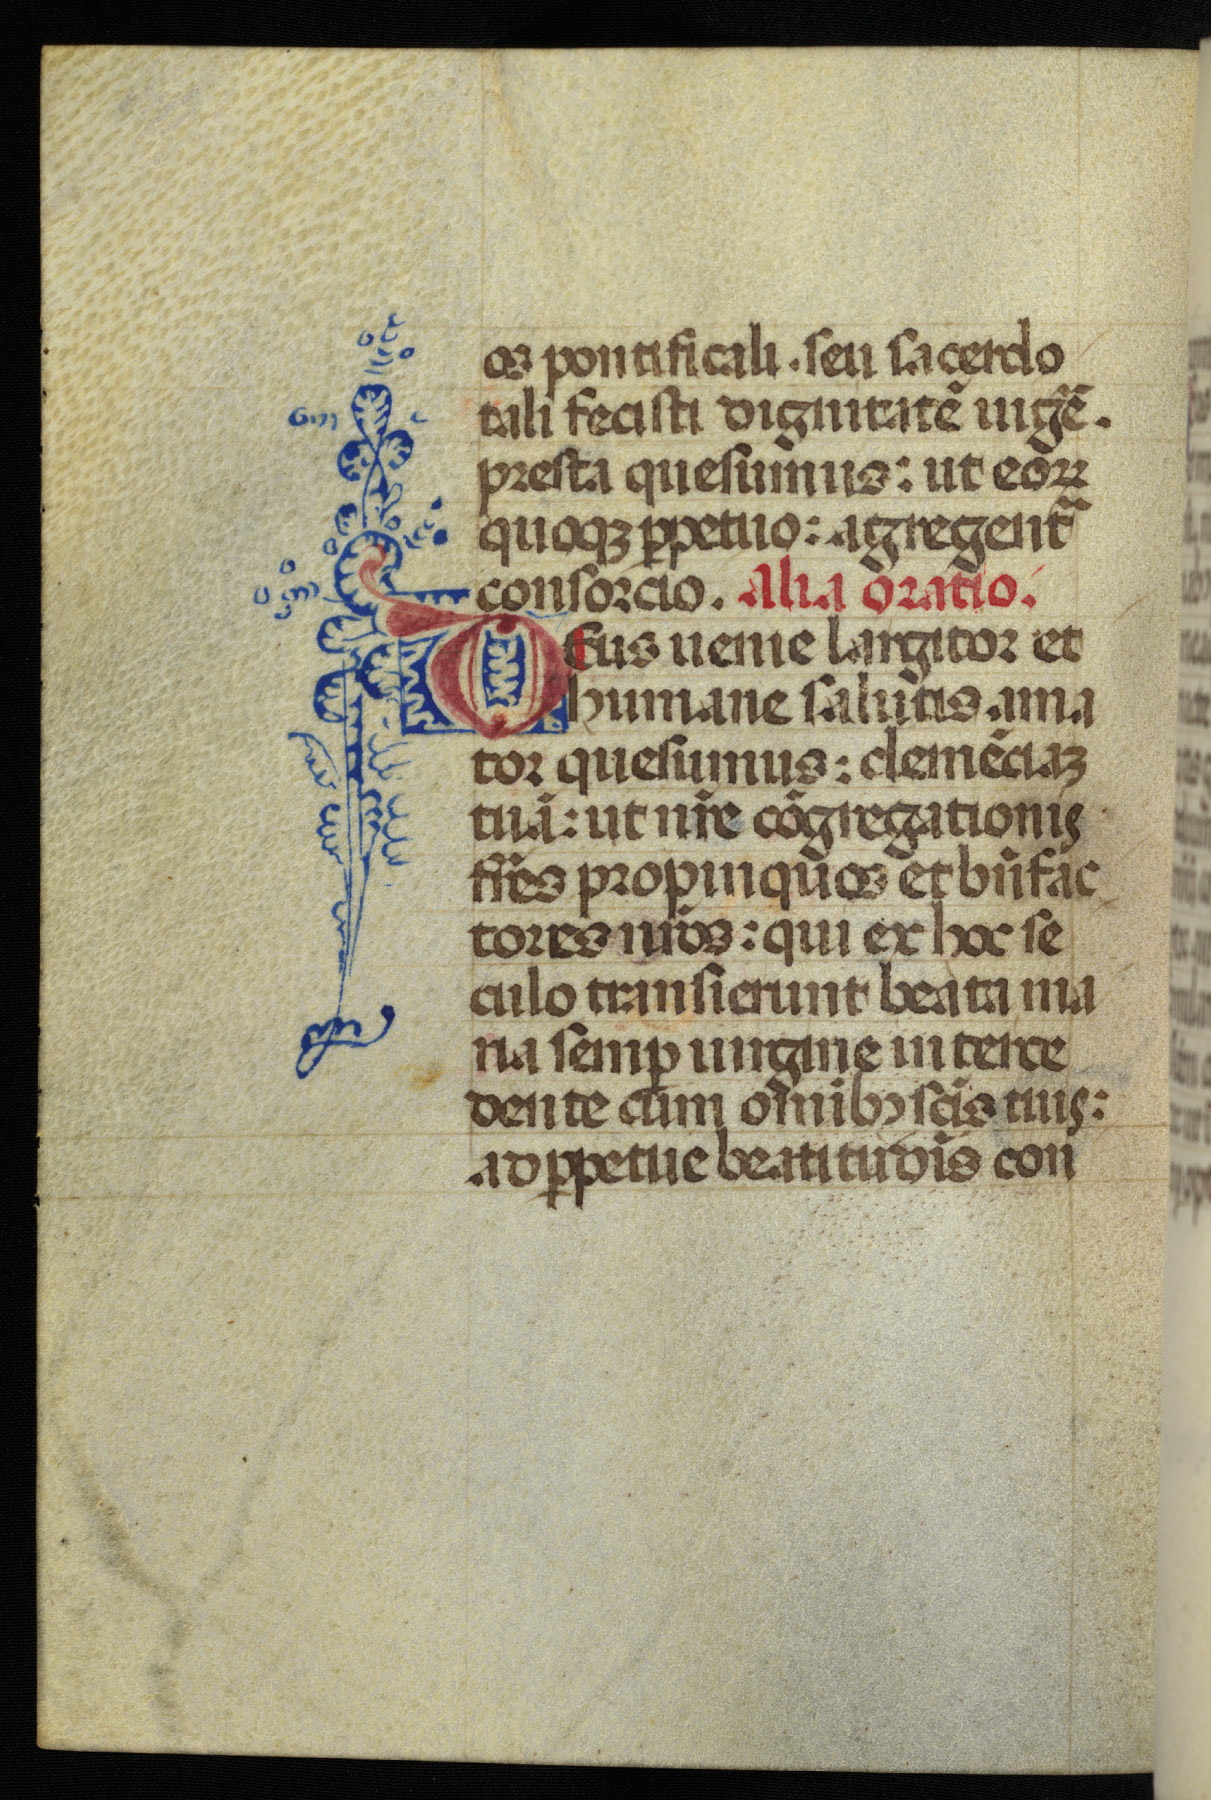 os pontificali. seu sacerdo
tali fecisti dignitatē uigẽ.
presta quesumus: ut eoꝝ
quoqꝫ ꝑpetuo: agregent᷑
consorcio. Alia oratio.
Deus uenie largitor et
humane salutis ama
tor quesumus: clemẽciaꝫ
tuā: ut nr̃e cõgregationis
fr̃es propinquos et bñfac
tores nr̃os: qui ex hoc se
culo transierunt beata ma
ria semꝑ uirgine interce
dente cum omnibꝫ scĩs tuis:
ad ꝑpetue beatitudĩs con